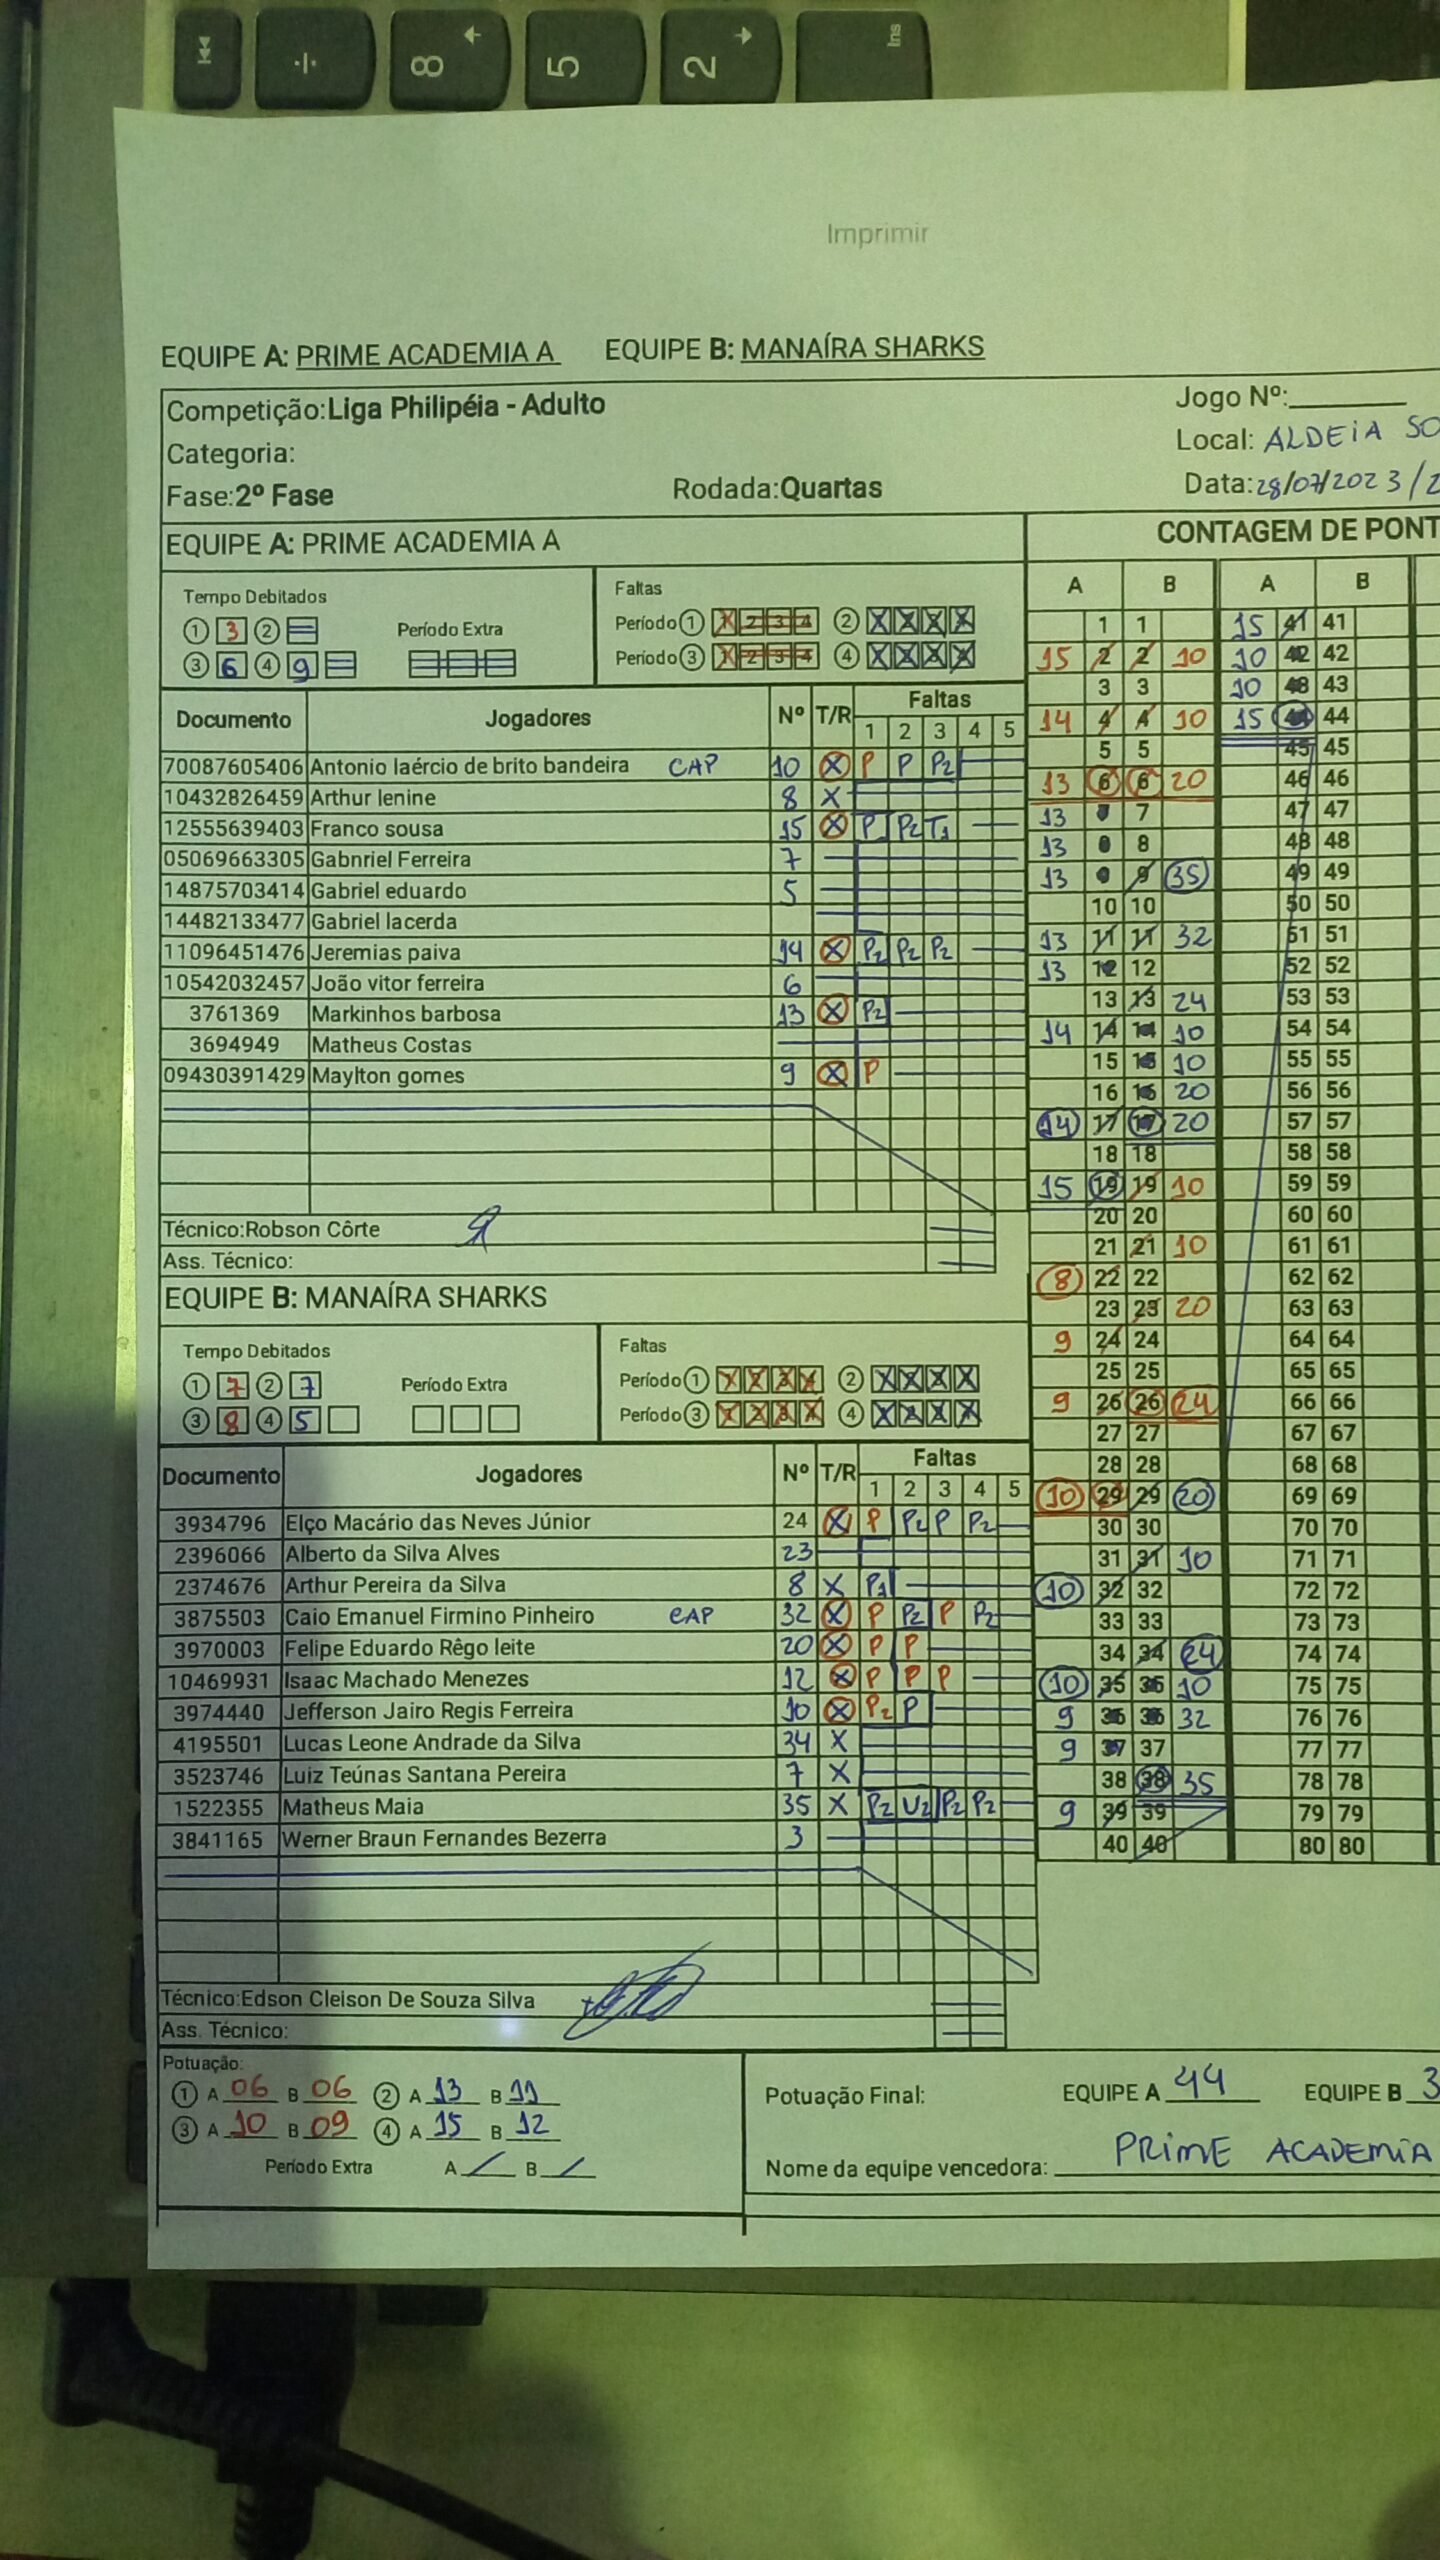 8 5 2 Ins
Imprimir
EQUIPE A: PRIME ACADEMIA A EQUIPE B: MANAÍRA SHARKS
Competição:Liga Philipéia - Adulto Jogo Nº:
Categoria: Local: ALDEIA SO
Fase:2º Fase Rodada:Quartas Data:28/07/2023/2
EQUIPE A: PRIME ACADEMIA A
Tempo Debitados
① 3 ② Período Extra
③ 6 ④ 9
Faltas
Período ① 1 2 3 4 ② X X X X
Período ③ 1 2 3 4 ④ X X X X
Documento Jogadores Nº T/R Faltas
1 2 3 4 5
70087605406 Antonio laércio de brito bandeira CAP 10 X P P P2
10432826459 Arthur lenine 8 X
12555639403 Franco sousa 15 X P P2 T1
05069663305 Gabnriel Ferreira 7
14875703414 Gabriel eduardo 5
14482133477 Gabriel lacerda
11096451476 Jeremias paiva 14 X P2 P2 P2
10542032457 João vitor ferreira 6
3761369 Markinhos barbosa 13 X P2
3694949 Matheus Costas
09430391429 Maylton gomes 9 X P
Técnico:Robson Côrte
Ass. Técnico:
EQUIPE B: MANAÍRA SHARKS
Tempo Debitados
① 7 ② 7 Período Extra
③ 8 ④ 5
Faltas
Período ① X X X X ② X X X X
Período ③ X X X X ④ X X X X
Documento Jogadores Nº T/R Faltas
1 2 3 4 5
3934796 Elço Macário das Neves Júnior 24 X P P2 P P2
2396066 Alberto da Silva Alves 23
2374676 Arthur Pereira da Silva 8 X P1
3875503 Caio Emanuel Firmino Pinheiro CAP 32 X P P2 P P2
3970003 Felipe Eduardo Rêgo leite 20 X P P
10469931 Isaac Machado Menezes 12 X P P P
3974440 Jefferson Jairo Regis Ferreira 10 X P2 P
4195501 Lucas Leone Andrade da Silva 34 X
3523746 Luiz Teúnas Santana Pereira 7 X
1522355 Matheus Maia 35 X P2 U2 P2 P2
3841165 Werner Braun Fernandes Bezerra 3
Técnico:Edson Cleison De Souza Silva
Ass. Técnico:
CONTAGEM DE PONT
A B A B
1 1 15 41 41
15 2 2 10 10 42 42
3 3 10 43 43
14 4 4 10 15 44 44
5 5 45 45
13 6 6 20 46 46
13 7 47 47
13 8 48 48
13 9 35 49 49
10 10 50 50
13 11 11 32 51 51
13 12 12 52 52
13 13 24 53 53
14 14 14 10 54 54
15 15 10 55 55
16 16 20 56 56
14 17 17 20 57 57
18 18 58 58
15 19 19 10 59 59
20 20 60 60
21 21 10 61 61
8 22 22 62 62
23 23 20 63 63
9 24 24 64 64
25 25 65 65
9 26 26 24 66 66
27 27 67 67
28 28 68 68
10 29 29 20 69 69
30 30 70 70
31 31 10 71 71
10 32 32 72 72
33 33 73 73
34 34 24 74 74
10 35 35 10 75 75
9 36 36 32 76 76
9 37 37 77 77
38 38 35 78 78
9 39 39 79 79
40 40 80 80
Potuação:
① A 06 B 06 ② A 13 B 11
③ A 10 B 09 ④ A 15 B 12
Período Extra A B
Potuação Final: EQUIPE A 44 EQUIPE B 3
Nome da equipe vencedora: PRIME ACADEMIA